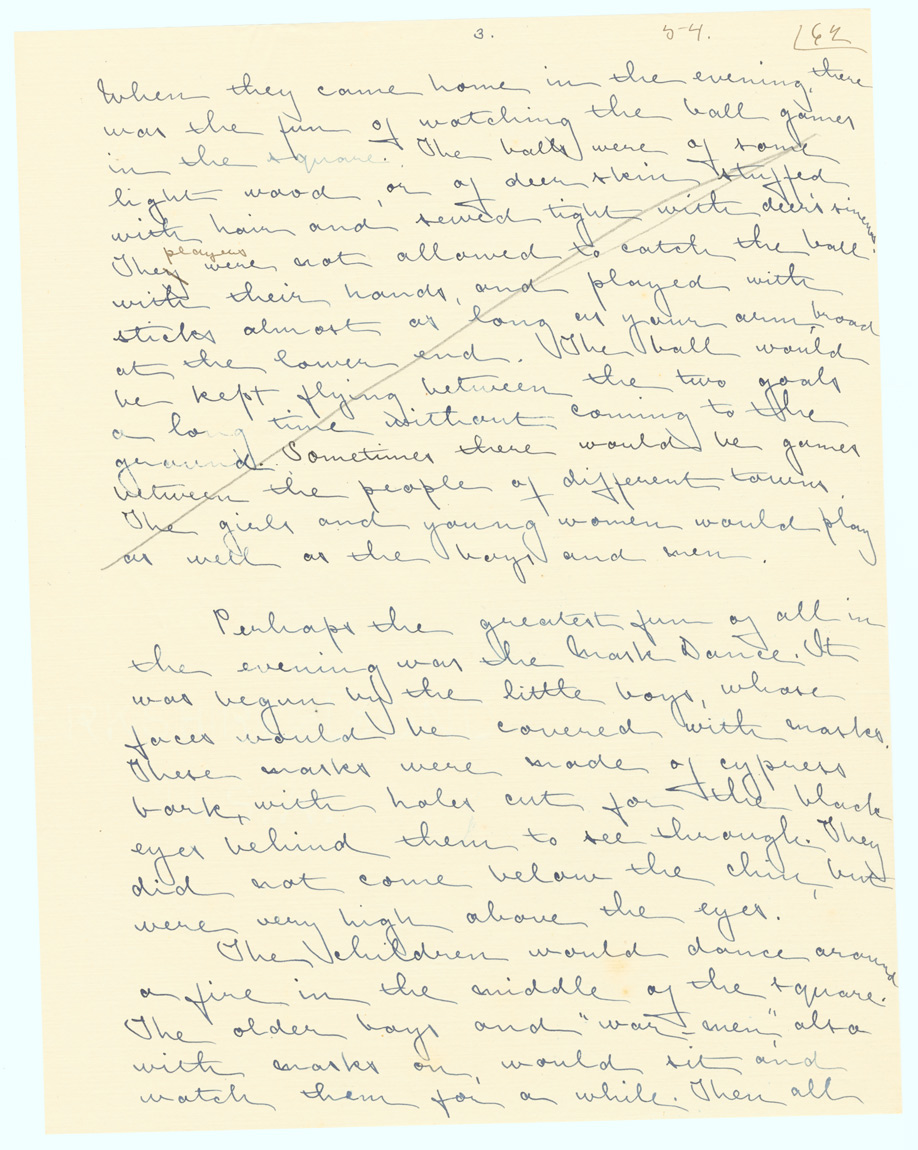 3. 5-4. 62
When they came home in the evening, there
was the fun of watching the ball games
in the square. The balls were of some
light wood, or of deer skin stuffed
with hair and sewed tight with deer's sinews.
They players were not allowed to catch the ball
with their hands, and played with
sticks almost as long as your arm, broad
at the lower end. The ball would
be kept flying between the two goals
a long time without coming to the
ground. Sometimes there would be games
between the people of different towns.
The girls and young women would play
as well as the boys and men.
Perhaps the greatest fun of all in
the evening was the Mask Dance. It
was begun by the little boys, whose
faces would be covered with masks.
These masks were made of cypress
bark, with holes cut for the black
eyes behind them to see through. They
did not come below the chin, but
were very high above the eyes.
The children would dance around
a fire in the middle of the square.
The older boys and "war-men", also
with masks on, would sit and
watch them for a while. Then all